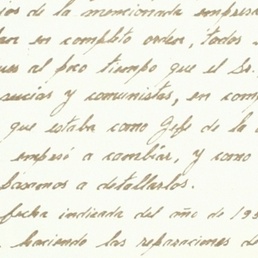 de la mencionada empresa
en completo orden, todos
al poco tiempo que el Sr.
sucias y comunistas, en com
que estaba como Gefe de la
empesó a cambiar, y como
a detallarlos.
fecha indicada del año de 195
haciendo las reparaciones de